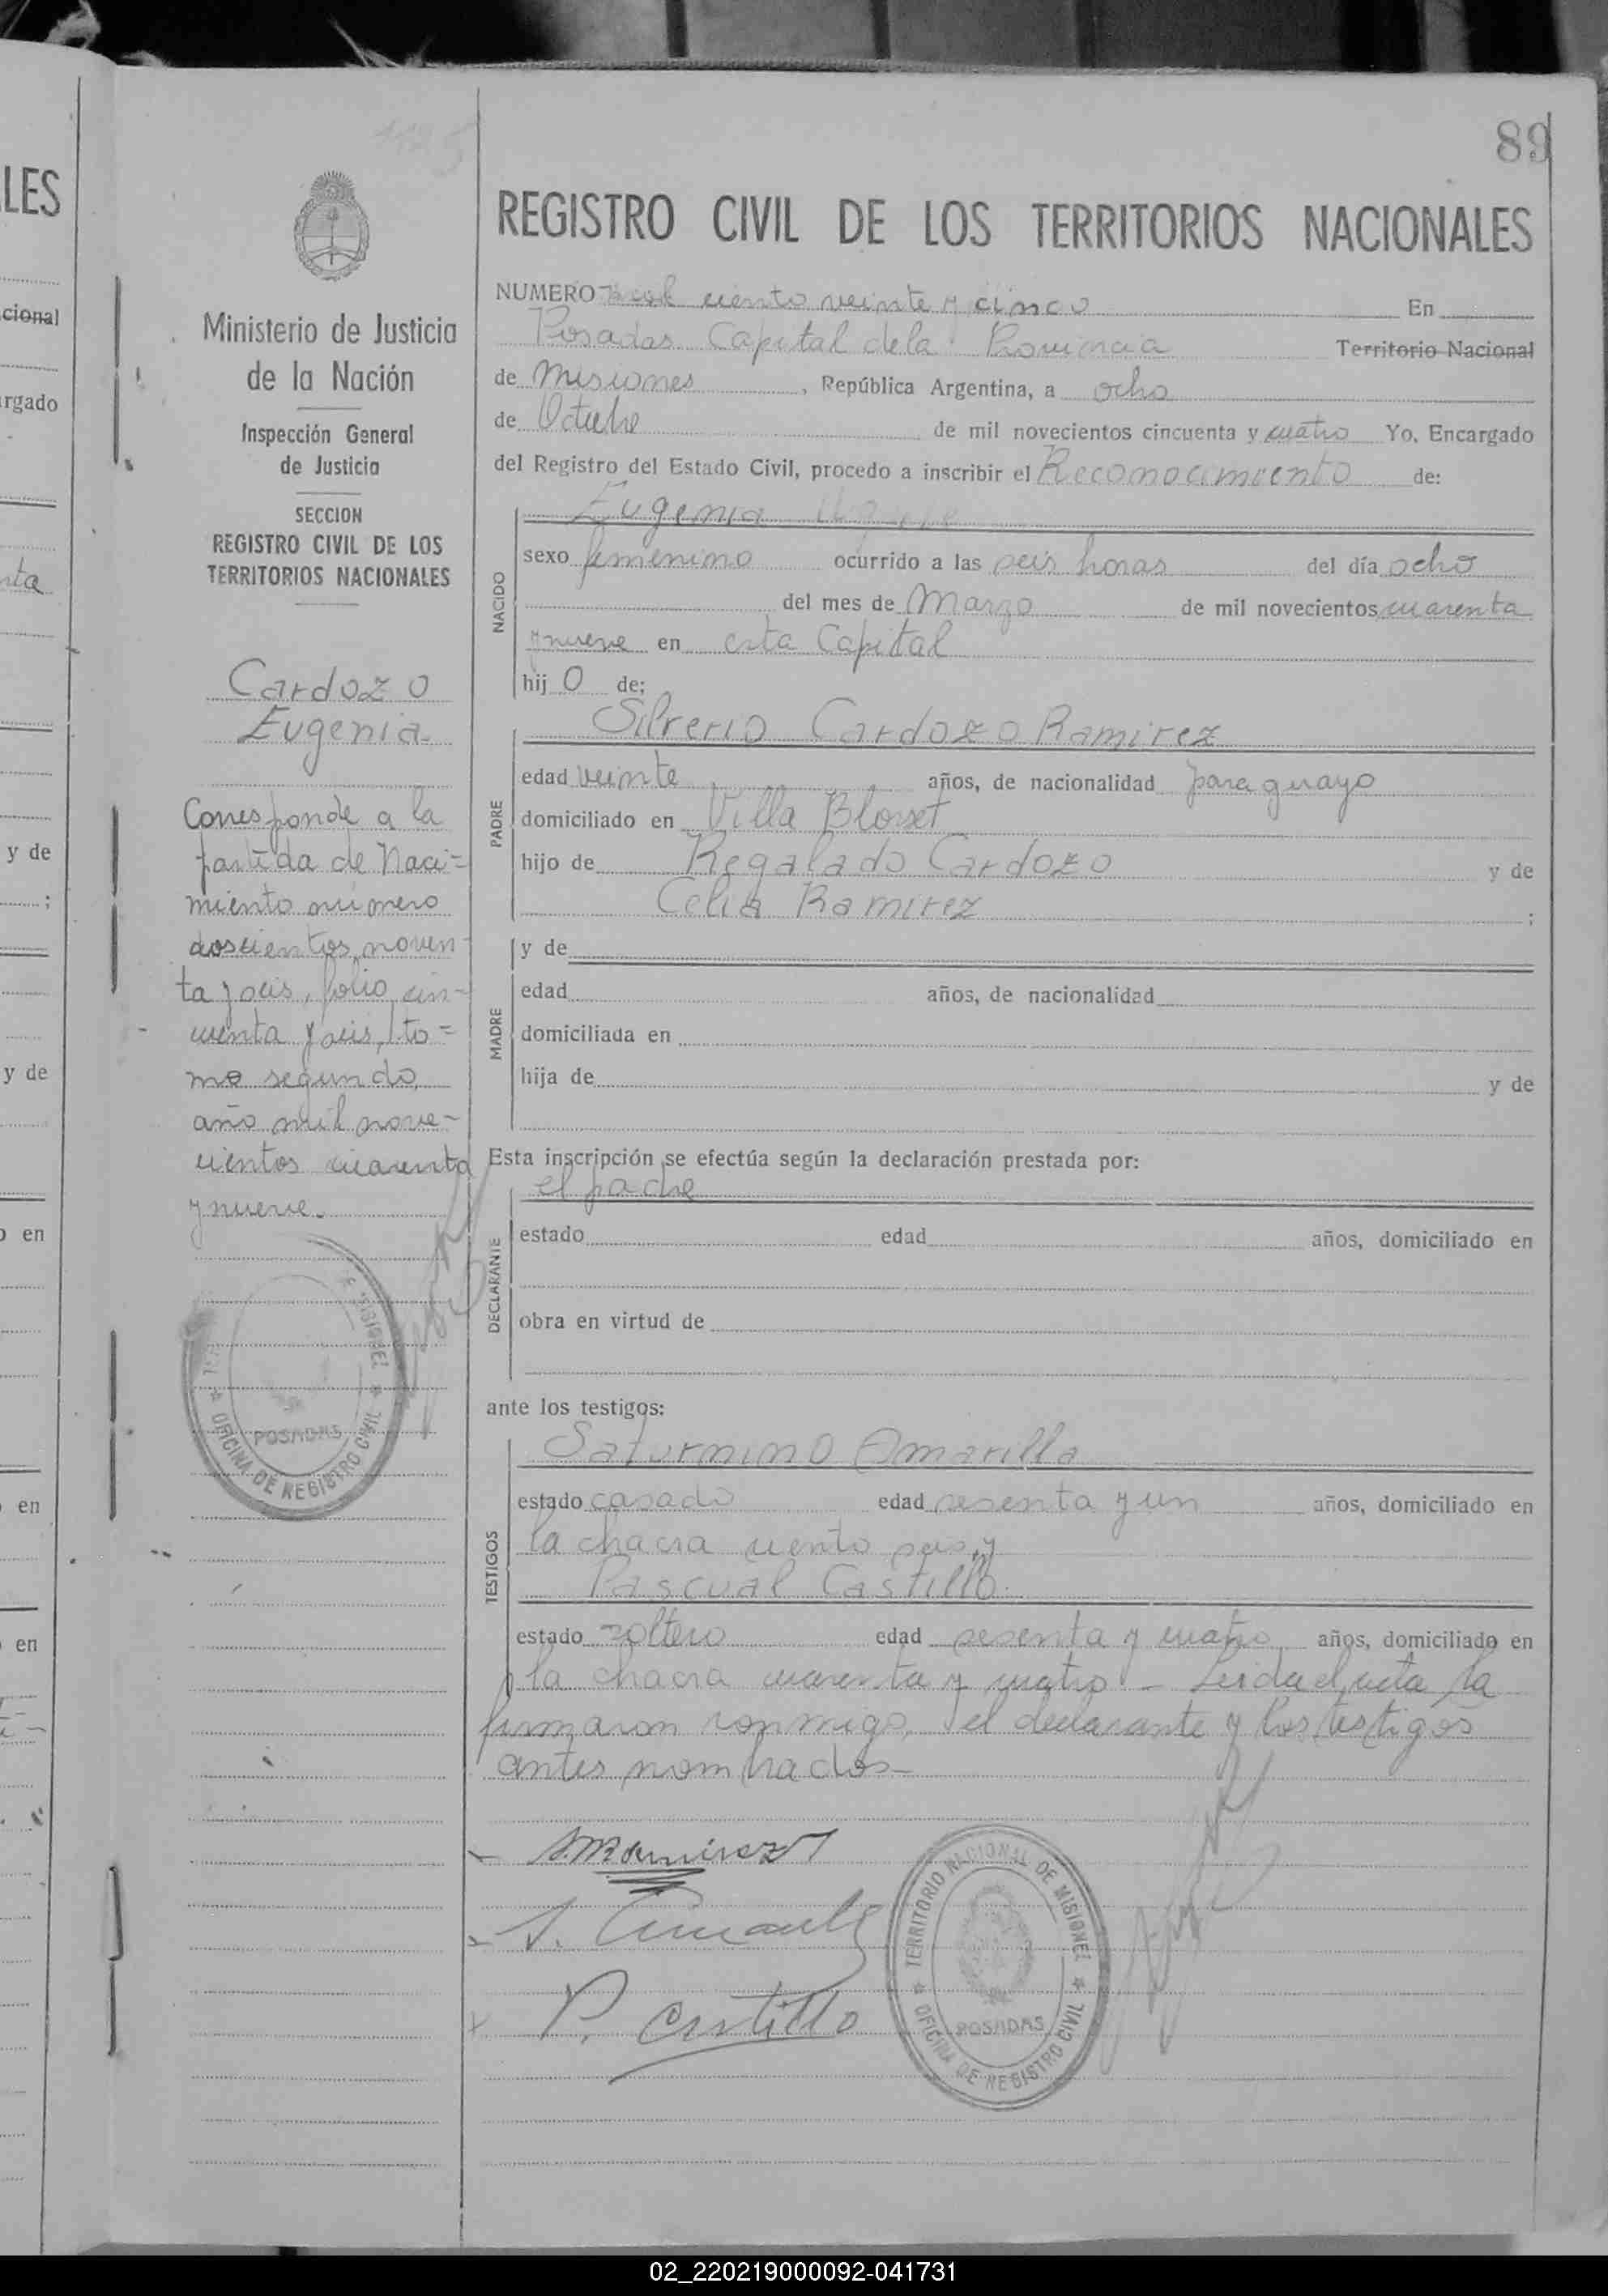 89
REGISTRO CIVIL DE LOS TERRITORIOS NACIONALES
NUMERO ciento veinte y cinco En
Posadas Capital de la Provincia Territorio Nacional
de Misiones, República Argentina, a ocho
de Octubre de mil novecientos cincuenta y cuatro Yo, Encargado
del Registro del Estado Civil, procedo a inscribir el Reconocimiento de:
Eugenia
NACIDO
sexo femenino ocurrido a las seis horas del día ocho
del mes de Marzo de mil novecientos cuarenta
y nueve en esta Capital
hij o de:
PADRE
Silverio Cardozo Ramirez
edad veinte años, de nacionalidad paraguayo
domiciliado en Villa Blosset
hijo de Regalado Cardozo y de
Celia Ramirez ;
MADRE
y de
edad años, de nacionalidad
domiciliada en
hija de y de
Esta inscripción se efectúa según la declaración prestada por:
el padre
DECLARANTE
estado edad años, domiciliado en
obra en virtud de
ante los testigos:
TESTIGOS
Saturnino Amarilla
estado casado edad sesenta y un años, domiciliado en
la chacra ciento seis, y
Pascual Castillo
estado soltero edad sesenta y cuatro años, domiciliado en
la chacra cuarenta y cuatro - Leida el acta la
firmaron conmigo, el declarante y los testigos
antes nombrados-
S. Ramirez
P. Castillo
TERRITORIO NACIONAL DE MISIONES
POSADAS
OFICINA DE REGISTRO CIVIL
Ministerio de Justicia
de la Nación
Inspección General
de Justicia
SECCION
REGISTRO CIVIL DE LOS
TERRITORIOS NACIONALES
Cardozo
Eugenia
Corresponde a la
partida de Naci-
miento número
doscientos noven-
ta y seis, folio cin-
cuenta y seis, to-
mo segundo,
año mil nove-
cientos cuarenta
y nueve.
POSADAS
OFICINA DE REGISTRO CIVIL
LES
cional
rgado
nta
y de
;
y de
o en
en
en
02_220219000092-041731